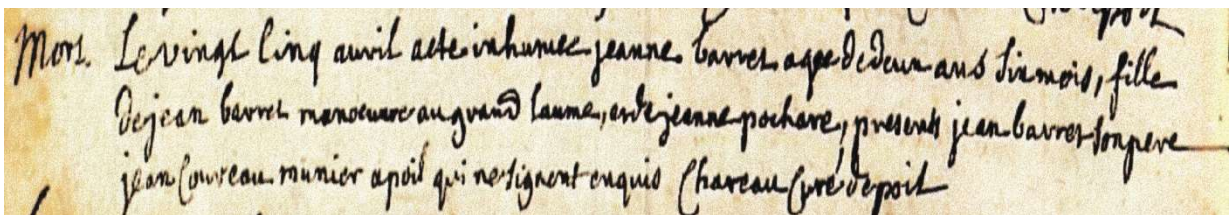 Mort. Le vingt cinq avril a ete inhumee jeanne barret agee de deux ans six mois, fille
de jean barret manoeuvre au grand laume, et de jeanne pochare, presents jean barret son pere
jean Couveau munier a poil qui ne signent enquis Chareau Curé de poil